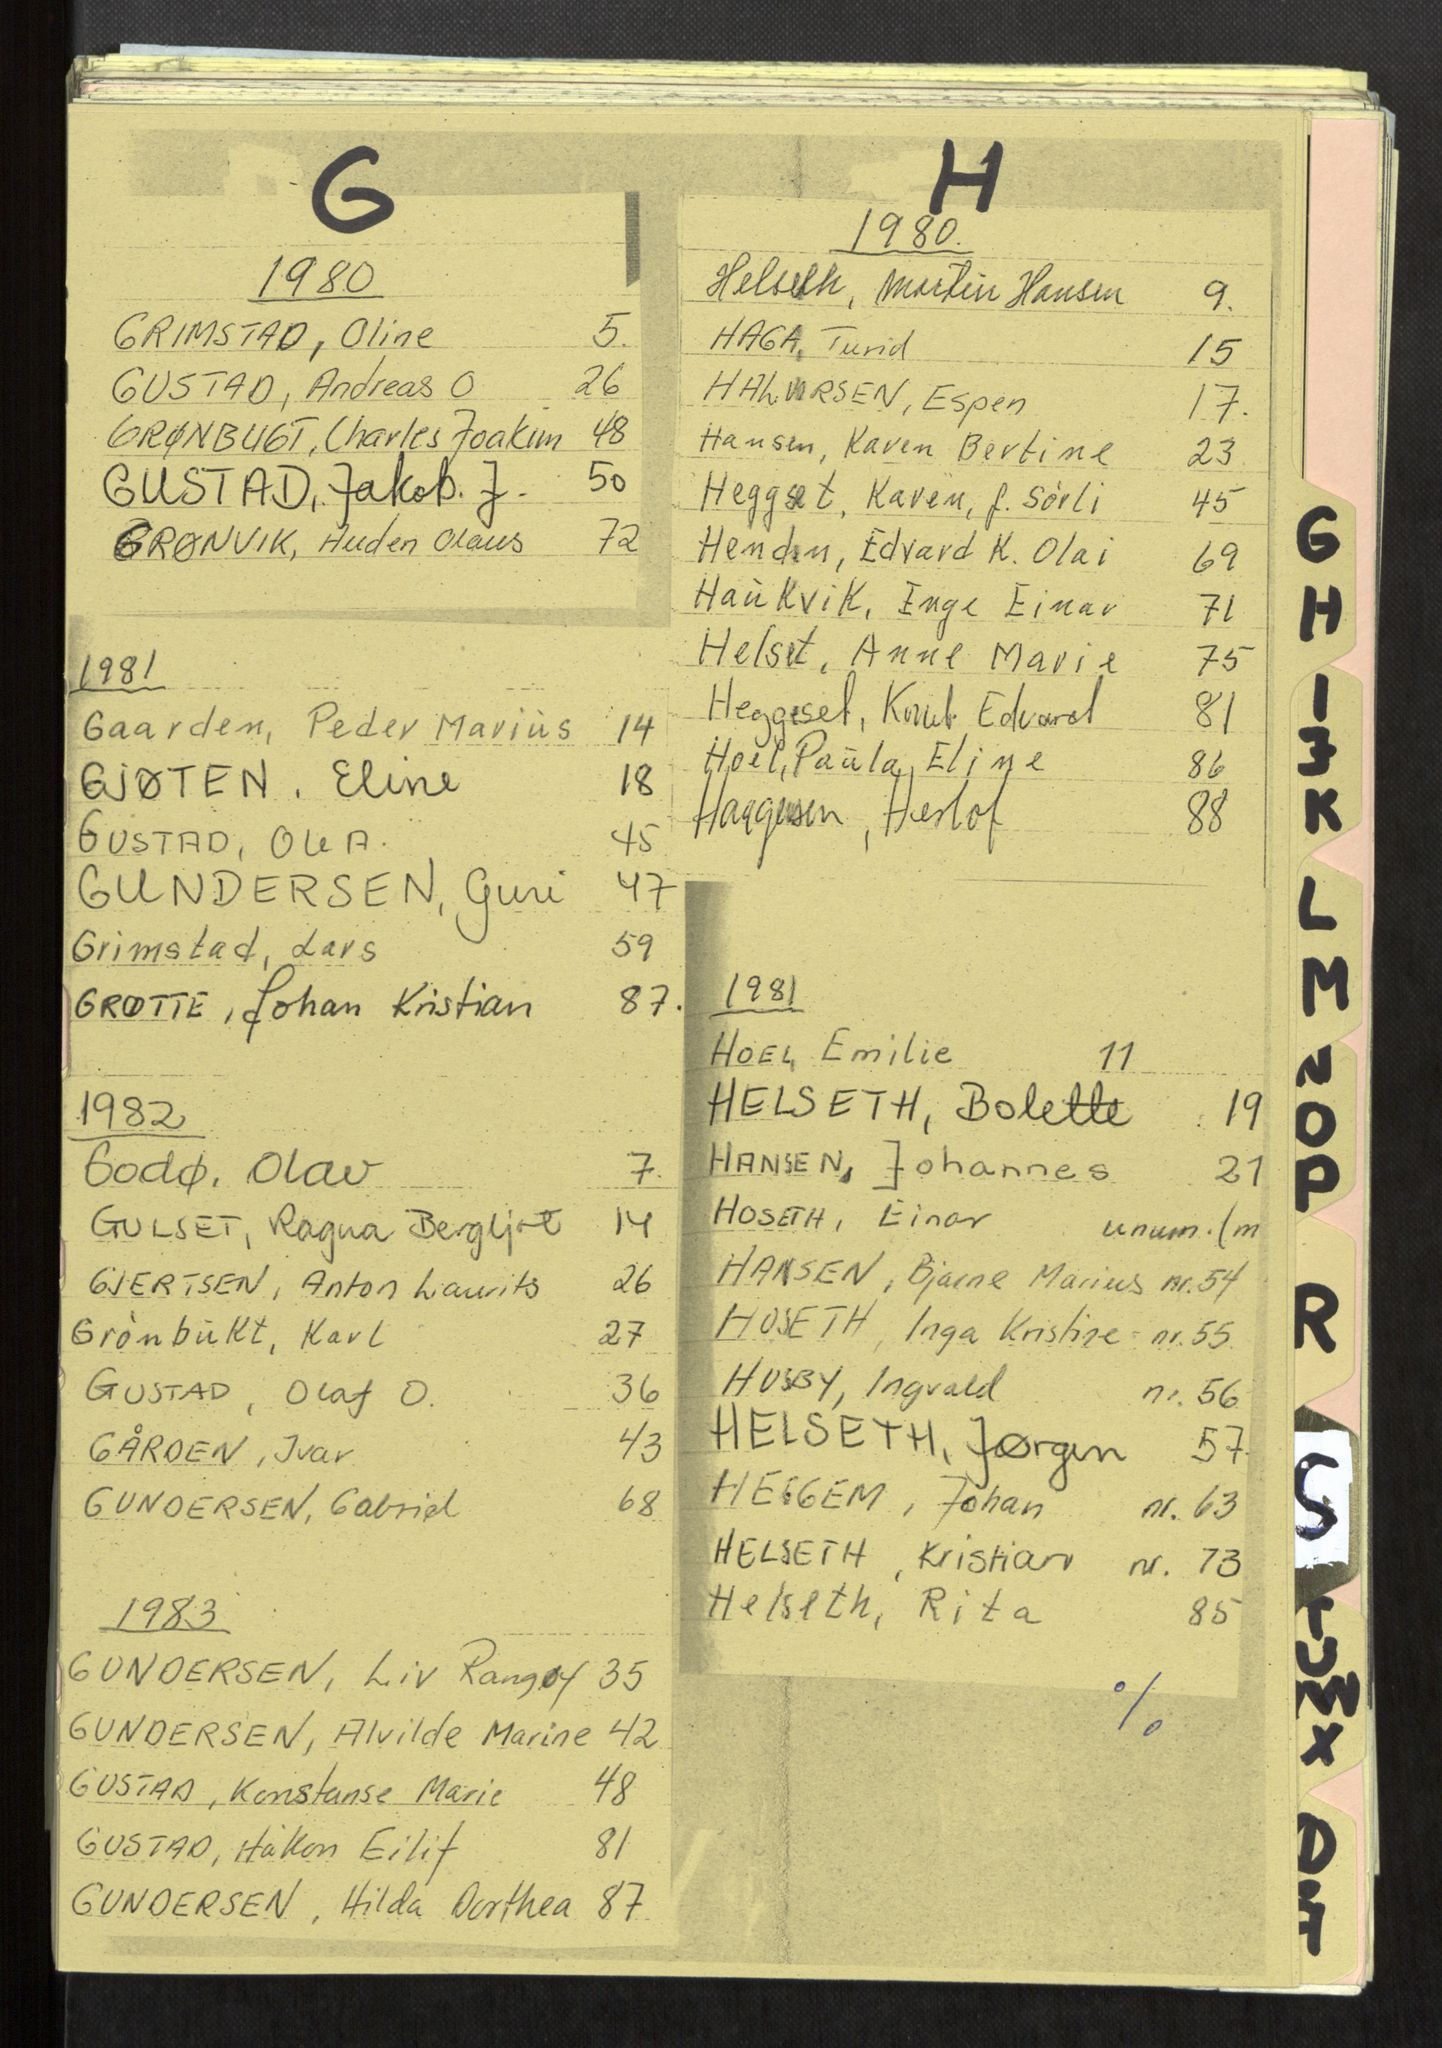 G
1980
GRIMSTAD, Oline 5.
GUSTAD, Andreas O 26
GRØNBUGT, Charles Joakim 48
GUSTAD, Jakob. J. 50
GRØNVIK, Olaus 72
1981
Gaarden, Peder Marius 14
GJØTEN, Eline 18
GUSTAD, Ole A. 45
GUNDERSEN, Guri 47
Grimstad, Lars 59
GRØTTE, Johan Kristian 87.
1982
Godø, Olav 7.
GULSET, Ragna Bergljot 14
GJERTSEN, Anton Laurits 26
Grönbukt, Karl 27
GUSTAD, Olaf O. 36
GÅRDEN, Ivar 43
GUNDERSEN, Gabriel 68
1983
GUNDERSEN, Liv Rangøy 35
GUNDERSEN, Alvilde Marine 42
GUSTAD, Konstanse Marie 48
GUSTAD, Håkon Eilif 81
GUNDERSEN, Hilda Dorthea 87
H
1980.
Helseth, Martin Hansen 9.
HAGA, Turid 15
HALVORSEN, Espen 17.
Hansen, Karen Bertine 23
Heggset, Karen, f. Sörli 45
Henden, Edvard K. Olai 69
Haukvik, Inge Einar 71
Helset, Anne Marie 75
Heggeset, Knut Edvard 81
Hoel, Paula Eline 86
Haagensen, Herlof 88
1981
HOEL, Emilie 11
HELSETH, Bolette 19
HANSEN, Johannes 21
HOSETH, Einar unum. (m
HANSEN, Bjarne Marius nr. 54
HOSETH, Inga Kristine nr. 55
HUSBY, Ingvald nr. 56
HELSETH, Jørgen 57
HEGGEM, Johan nr. 63
HELSETH, Kristian nr. 73
Helseth, Rita 85
%
G
H
I
J
K
L
M
N
O
P
R
S
T
U
W
X